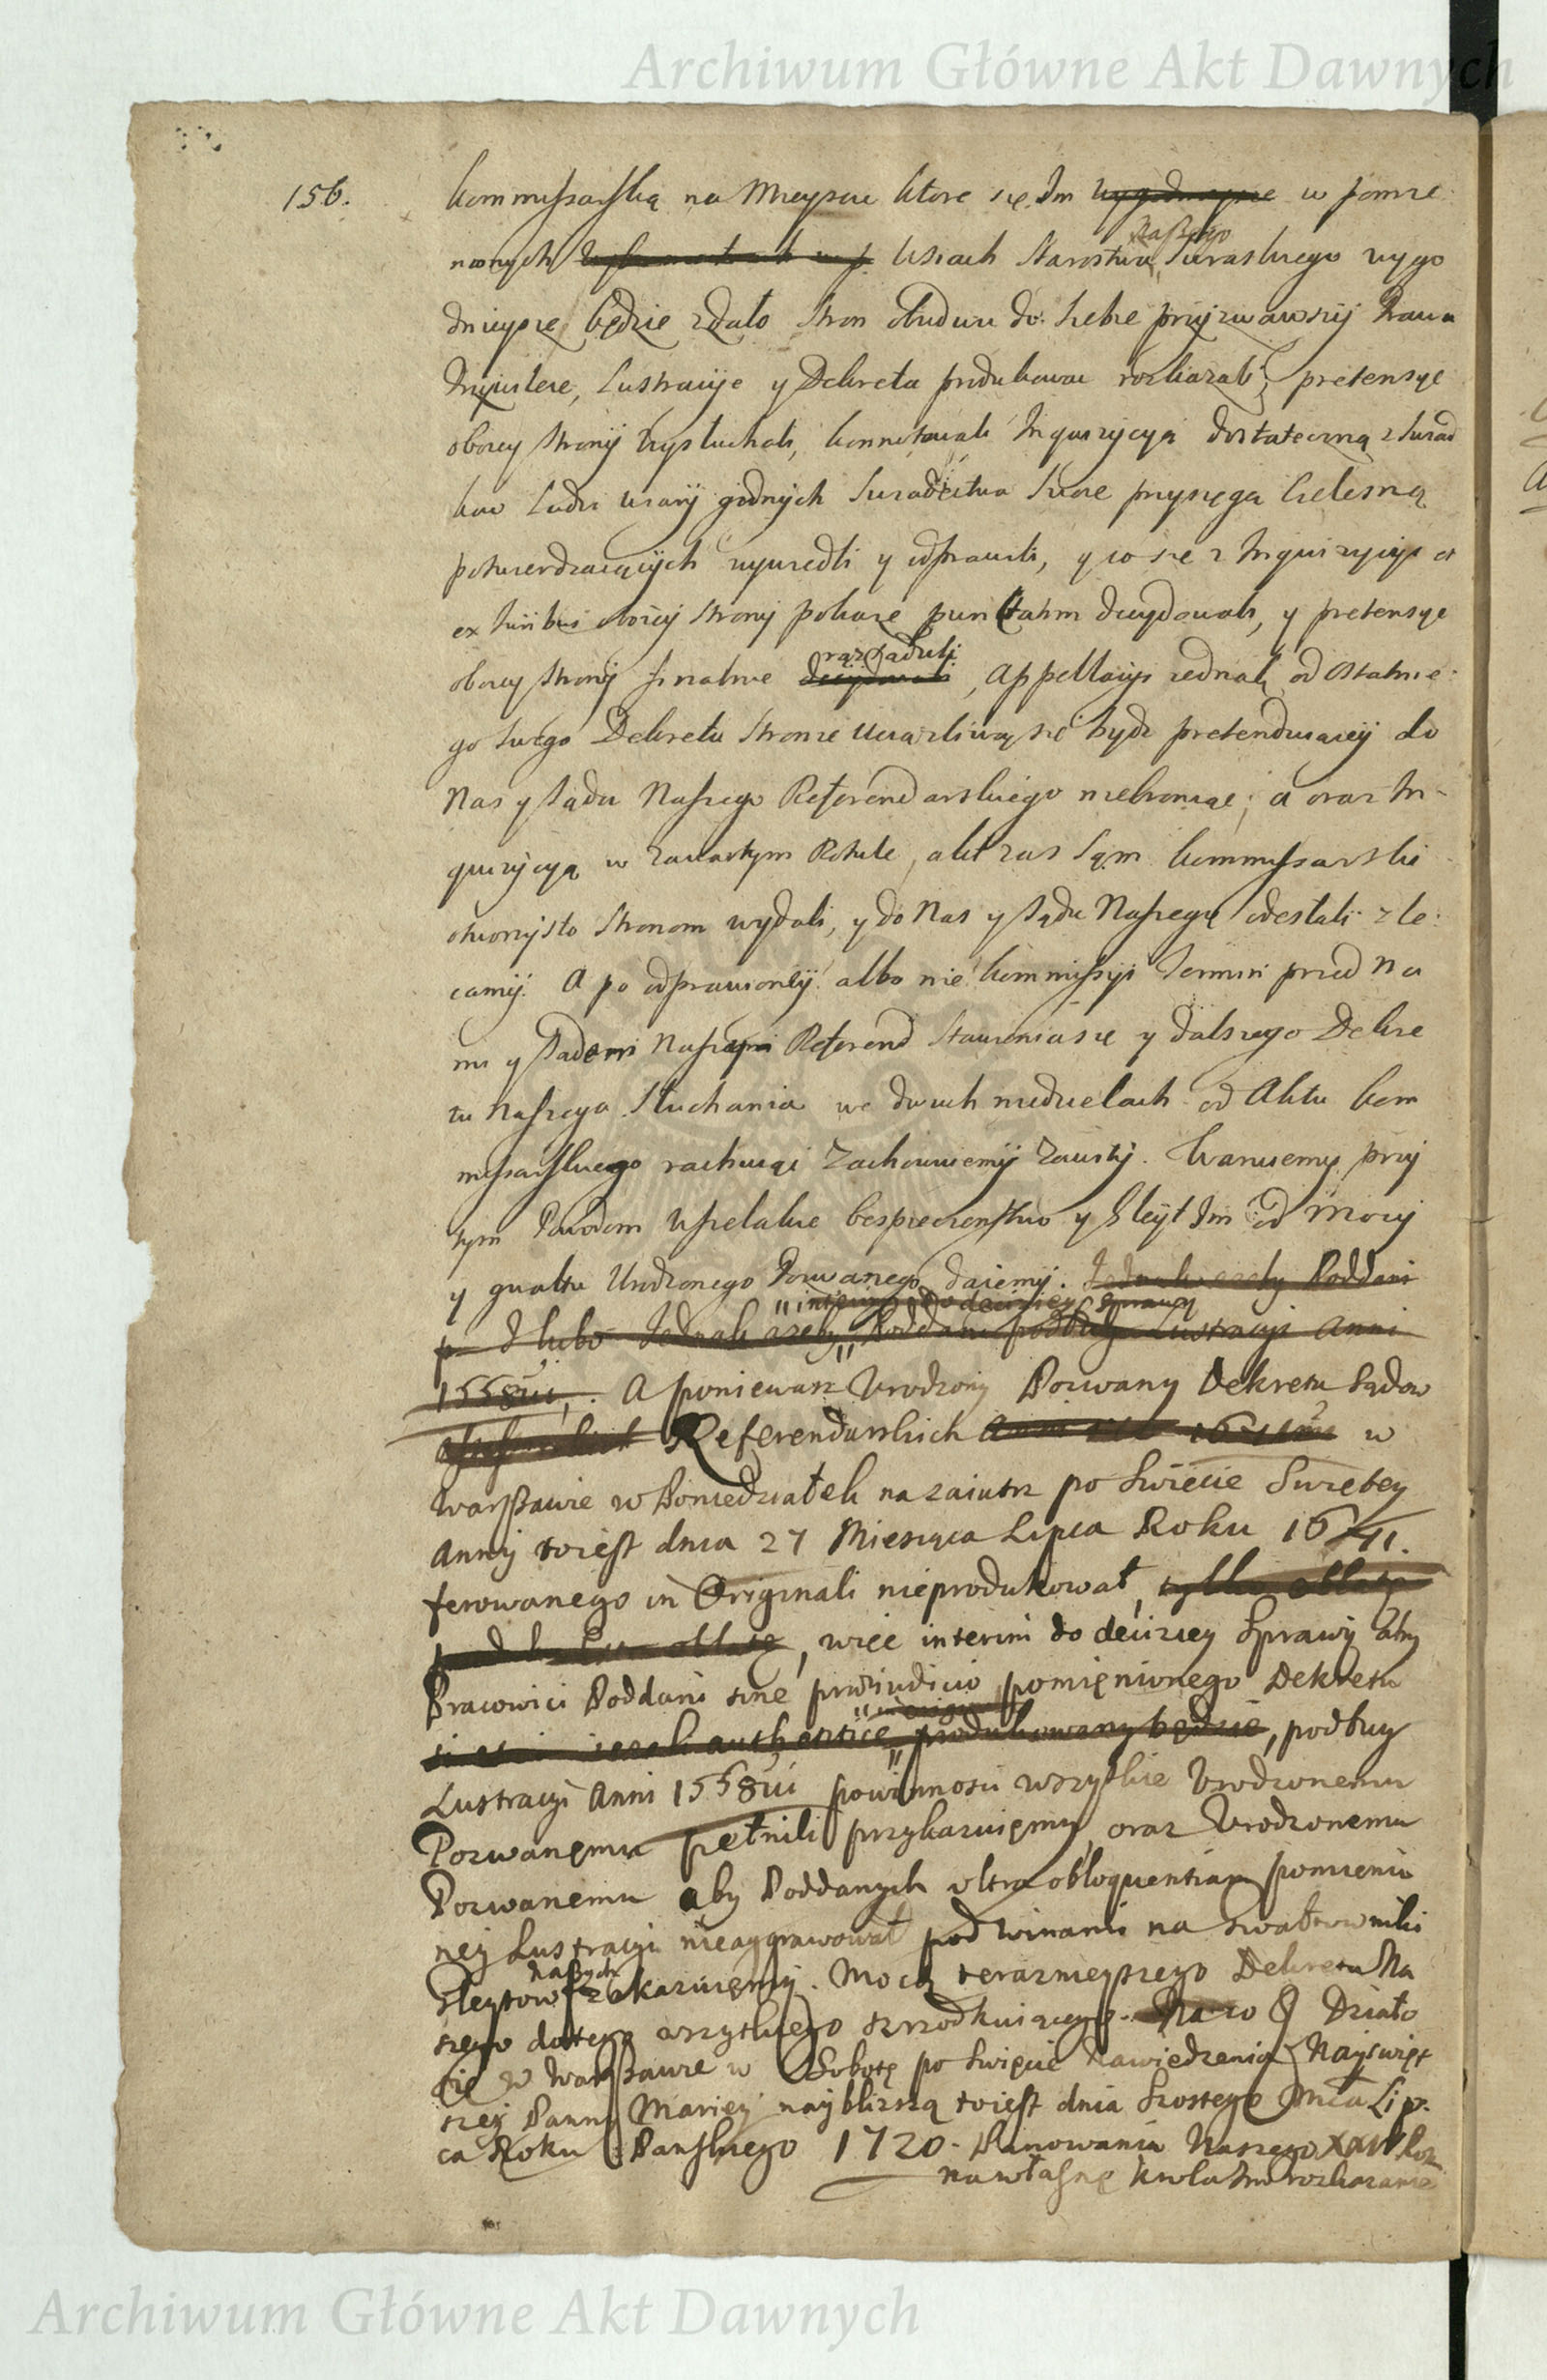 Archiwum Główne Akt Dawnych
156.
kommissarską na Mieyscu ktore się Im wygodnieysze w pomie
nionych wsiach Starostwa Naszego Suraskiego wygo
dnieysze będzie zdało stron obudwu do siebie przyzwawszÿ Prawa
Przywileie, Lustracÿe y Dekreta produkować rozkazali, pretensye
oboiey stronÿ wysłuchali, konnotowali Inquizycyą dostateczną z Swiad
kow Ludzi wiarÿ godnÿch Swiadectwa swoie przysięgą Cielesną
potwierdzaiącÿch wywiedli y odprawili, y co się z Inquizycyi a
ex Iuribus oboiey stronÿ pokaże punctatim decydowali, y pretensye
oboiey stronÿ finalnie decydowali rozsądzili, Appellacyi iednak od ostatnie
go swego Dekretu stronie uciążliwą się bydz pretenduiącey do
Nas y Sądu Naszego Referendarskiego niebroniąc, a oraz In
quizÿcyą w zawartym Rotule, akt zas sam kommissarski
otworzysto stronom wydali, y do Nas y Sądu Naszego odesłali zle
camÿ. A po odprawionęÿ albo nie kommissyi Termin przed Na
mi y Sądem Naszym Referend stawieniasię y dalszego Dekre
tu Naszego słuchania we dwuch niedzielach od Aktu kom
missarskiego rachuiąc zachowuiemÿ zawitÿ. Waruiemy przÿ
tym Powodom wszelakie bespieczenstwo y Gleÿt Im od mocÿ
y gwałtu Urodzonego Pozwanego daiemÿ. Jednak azeby Poddani
interim do decyzyey sprawy
p Jlubo Jednak azeby Poddani podług Lustracyi Anni
1558vi, . A poniewasz Urodzony Pozwany Dekretu Sądow
Referendarskich Anni 1641mi w
Warszawie w Poniedziałek nazaiutrz po Swięcie Swiętey
Annÿ toiest dnia 27 Miesiąca Lipca Roku 1641.
ferowanego in Originali nieprodukował, tylko oblatę
oblatę, więc interim do decizyey Sprawÿ aby
Pracowici Poddani sine praeiudicio pomięnionego Dekretu
authentice produkowany będzie, podług
Lustracyi Anni 1558vi powinnosci wszytkie Urodzonemu
Pozwanęmu pełnili przykazuięmy, oraz Urodzonemu
Pozwanemu aby Poddanych ultra obloquentiam pomienio
neÿ Lustracyi nieaggrawował pod winami na gwałtownikı
Gleytow Naszych zakazuięmÿ. Mocą teraznieyszego Dekretu Na
szego do tego wszytkiego szrzodkuiącego. Działo
się w Warszawie w Sobotę po Swięcie Nawiedzenia Nayswięt
szeÿ Panny Marieÿ naÿblizszą toiest dnia Szostego Mca Lip
ca Roku Panskiego 1720. Panowania Naszego XXIV Ro
na własne Krola Jmci rozkazanie
Archiwum Główne Akt Dawnych